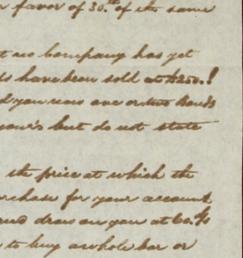 favor of 30.th of the same
no Company has yet
have been sold at $250.!
you one or two Bonds
but do not state
the price at which the
purchase for your account
draw on you at 60.
to buy a whole bar or